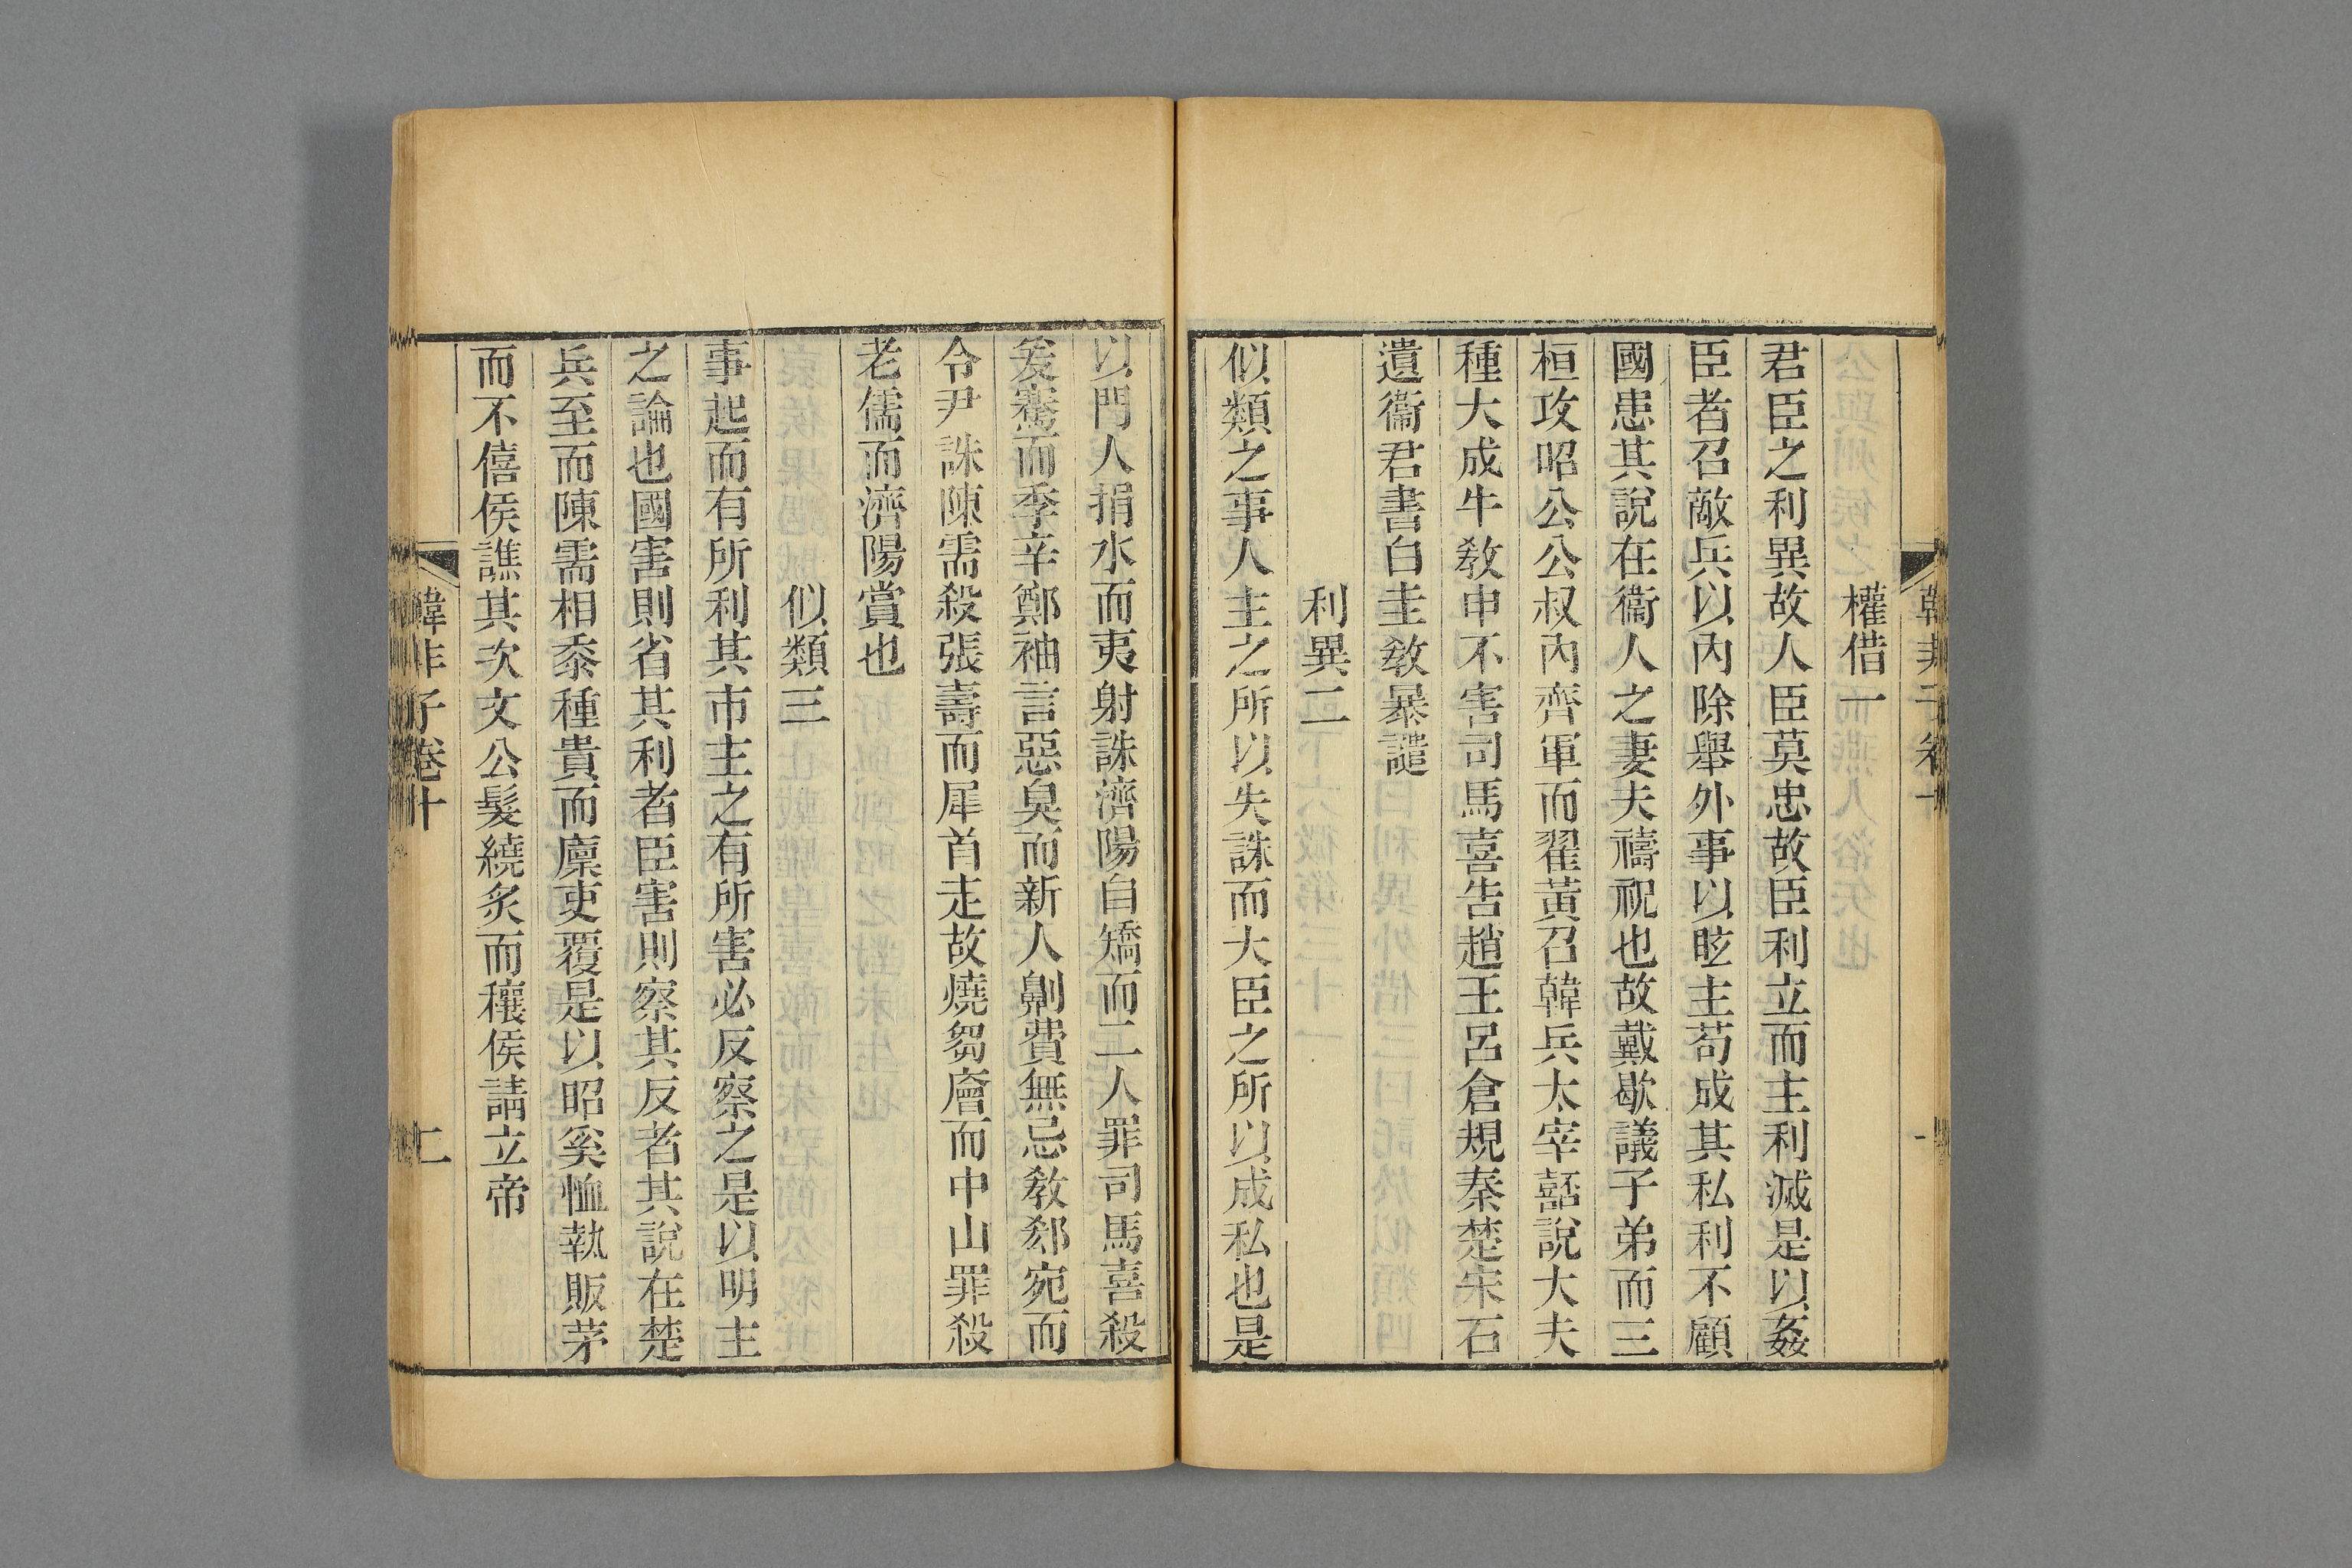 韓非子卷十
權借一
君臣之利異故人臣莫忠故臣利立而主利滅是以姦
臣者召敵兵以內除舉外事以眩主苟成其私利不顧
國患其說在衞人之妻夫禱祝也故戴歇議子弟而三
桓攻昭公公叔內齊軍而翟黃召韓兵太宰嚭說大夫
種大成牛敎申不害司馬喜告趙王呂倉規秦楚宋石
遺衞君書白圭敎暴譴
利異二
似類之事人主之所以失誅而大臣之所以成私也是
以門人捐水而夷射誅濟陽自矯而二人罪司馬喜殺
爰騫而季辛鄭袖言惡臭而新人劓費無忌敎郄宛而
令尹誅陳需殺張壽而犀首走故燒芻廥而中山罪殺
老儒而濟陽賞也
似類三
事起而有所利其市主之有所害必反察之是以明主
之論也國害則省其利者臣害則察其反者其說在楚
兵至而陳需相黍種貴而廩吏覆是以昭奚恤執販茅
而不僖侯譙其次文公髮繞炙而穰侯請立帝
韓非子卷十
二